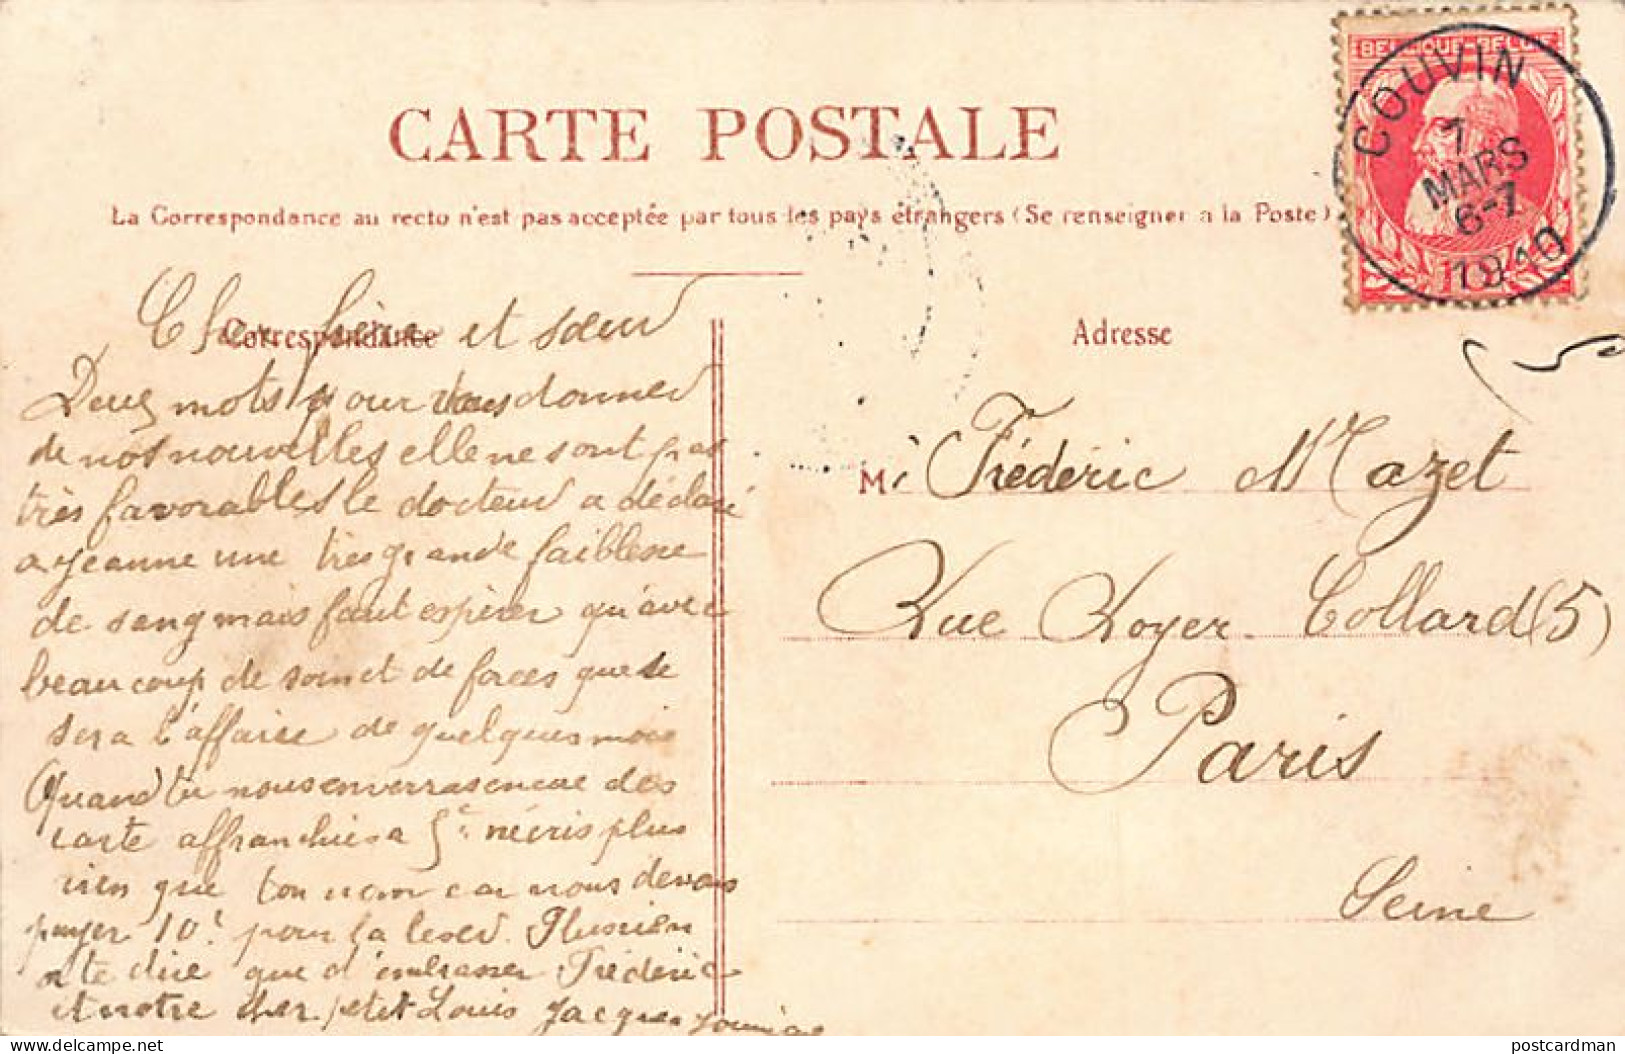 CARTE POSTALE
La Correspondance au recto n'est pas acceptée par tous les pays étrangers (Se renseigner a la Poste)
BELGIQUE-BELGIE
COUVIN
7
MARS
6-7
1910
10
Correspondance
Adresse
Cher frère et sœur
Deux mots pour vous donner
de nos nouvelles elle ne sont pas
très favorables le docteur a déclaré
a Jeanne une très grande faiblesse
de sang mais faut espérer qu'avec
beaucoup de soin et de forces que se
sera l'affaire de quelques mois
Quand tu nous enverras encore des
carte affranchies a 5c n'écris plus
rien que ton nom car nous devons
payer 10c pour la lever. Plus rien
a te dire que d'embrasser Frédéric
et notre cher petit Louis Jacques
M. Frédéric Mazet
Rue Royer Collard (5)
Paris
Seine
delcampe.net
postcardman